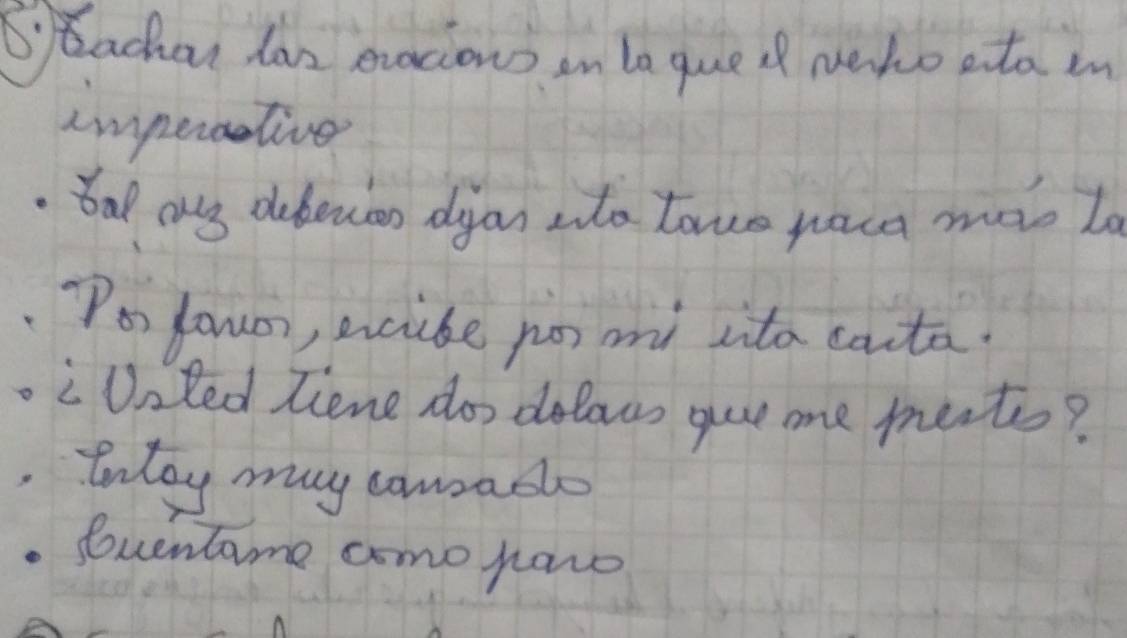 8. Tachar las oracions en la que el verbo esta en
imperativo
• Tal vez deberias dejar esta tarea para más ta
• Por favor, escribe por mi esta carta.
• ¿Usted tiene dos dolares que me prestes?
• Estoy muy cansado
• Cuentame como paso